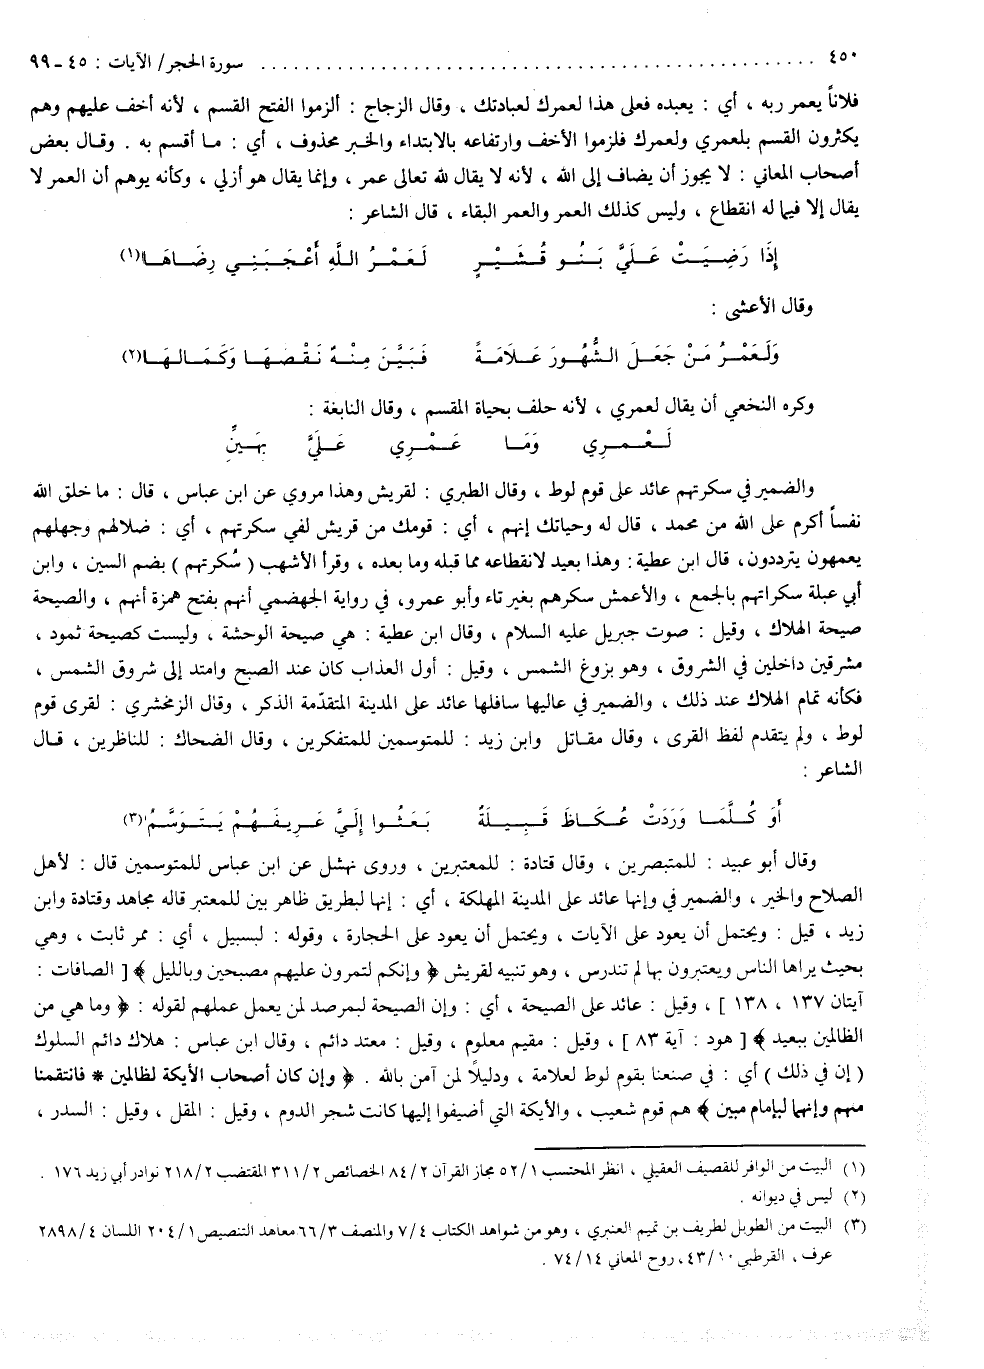 ٤٥٠ .................................................. سورة الحجر/ الآيات : ٤٥ ـ ٩٩
فلاناً يعمر ربه ، أي : يعبده فعلى هذا لعمرك لعبادتك ، وقال الزجاج : ألزموا الفتح القسم ، لأنه أخف عليهم وهم
يكثرون القسم بلعمري ولعمرك فلزموا الأخف وارتفاعه بالابتداء والخبر محذوف ، أي : ما أقسم به . وقال بعض
أصحاب المعاني : لا يجوز أن يضاف إلى الله ، لأنه لا يقال لله تعالى عمر ، وإنما يقال هو أزلي ، وكأنه يوهم أن العمر لا
يقال إلا فيما له انقطاع ، وليس كذلك العمر والعمر البقاء ، قال الشاعر :
إِذَا رَضِيَتْ عَلَيَّ بَنُو قُشَيْرٍ لَعَمْرُ اللَّهِ أَعْجَبَنِي رِضَاهَا(١)
وقال الأعشى :
وَلَعَمْرُ مَنْ جَعَلَ الشُّهُورَ عَلَامَةً فَبَيَّنَ مِنْهُ نَقْصَهَا وَكَمَالَهَا(٢)
وكره النخعي أن يقال لعمري ، لأنه حلف بحياة المقسم ، وقال النابغة :
لَعَمْرِي وَمَا عَمْرِي عَلَيَّ بِهَيِّنٍ
والضمير في سكرتهم عائد على قوم لوط ، وقال الطبري : لقريش وهذا مروي عن ابن عباس ، قال : ما خلق الله
نفساً أكرم على الله من محمد ، قال له وحياتك إنهم ، أي : قومك من قريش لفي سكرتهم ، أي : ضلالهم وجهلهم
يعمهون يترددون، قال ابن عطية : وهذا بعيد لانقطاعه مما قبله وما بعده ، وقرأ الأشهب ( سُكرتهم ) بضم السين ، وابن
أبي عبلة سكراتهم بالجمع ، والأعمش سكرهم بغير تاء وأبو عمرو، في رواية الجهضمي أنهم بفتح همزة أنهم ، والصيحة
صيحة الهلاك ، وقيل : صوت جبريل عليه السلام ، وقال ابن عطية : هي صيحة الوحشة ، وليست كصيحة ثمود ،
مشرقين داخلين في الشروق ، وهو بزوغ الشمس ، وقيل : أول العذاب كان عند الصبح وامتد إلى شروق الشمس ،
فكأنه تمام الهلاك عند ذلك ، والضمير في عاليها سافلها عائد على المدينة المتقدّمة الذكر ، وقال الزمخشري : لقرى قوم
لوط ، ولم يتقدم لفظ القرى ، وقال مقاتل وابن زيد : للمتوسمين للمتفكرين ، وقال الضحاك : للناظرين ، قال
الشاعر :
أَو كُلَّمَا وَرَدَتْ عُكَاظَ قَبِيلَةٌ بَعَثُوا إِلَيَّ عَرِيفَهُمْ يَتَوَسَّمُ(٣)
وقال أبو عبيد : للمتبصرين ، وقال قتادة : للمعتبرين ، وروى نهشل عن ابن عباس للمتوسمين قال : لأهل
الصلاح والخير ، والضمير في وإنها عائد على المدينة المهلكة ، أي : إنها لبطريق ظاهر بين للمعتبر قاله مجاهد وقتادة وابن
زيد ، قيل : ويحتمل أن يعود على الآيات ، ويحتمل أن يعود على الحجارة ، وقوله : لبسبيل ، أي : ممر ثابت ، وهي
بحيث يراها الناس ويعتبرون بها لم تندرس ، وهو تنبيه لقريش ﴿ وإنكم لتمرون عليهم مصبحين وبالليل ﴾ [ الصافات :
آيتان ١٣٧ ، ١٣٨ ] ، وقيل : عائد على الصيحة ، أي : وإن الصيحة لبمرصد لمن يعمل عملهم لقوله : ﴿ وما هي من
الظالمين ببعيد ﴾ [ هود : آية ٨٣ ] ، وقيل : مقيم معلوم ، وقيل : معتد دائم ، وقال ابن عباس : هلاك دائم السلوك
( إن في ذلك ) أي : في صنعنا بقوم لوط لعلامة ، ودليلاً لمن آمن بالله . ﴿ وإن كان أصحاب الأيكة لظالمين * فانتقمنا
منهم وإنهما لبإمام مبين ﴾ هم قوم شعيب ، والأيكة التي أضيفوا إليها كانت شجر الدوم ، وقيل : المقل ، وقيل : السدر ،
(١) البيت من الوافر للقصيف العقيلي ، انظر المحتسب ٥٢/١ مجاز القرآن ٨٤/٢ الخصائص ٣١١/٢ المقتضب ٢١٨/٢ نوادر أبي زيد ١٧٦ .
(٢) ليس في ديوانه .
(٣) البيت من الطويل لطريف بن تميم العنبري ، وهو من شواهد الكتاب ٧/٤ والمنصف ٦٦/٣ معاهد التنصيص ٢٠٤/١ اللسان ٢٨٩٨/٤
عرف ، القرطبي ٤٣/١٠، روح المعاني ٧٤/١٤ .